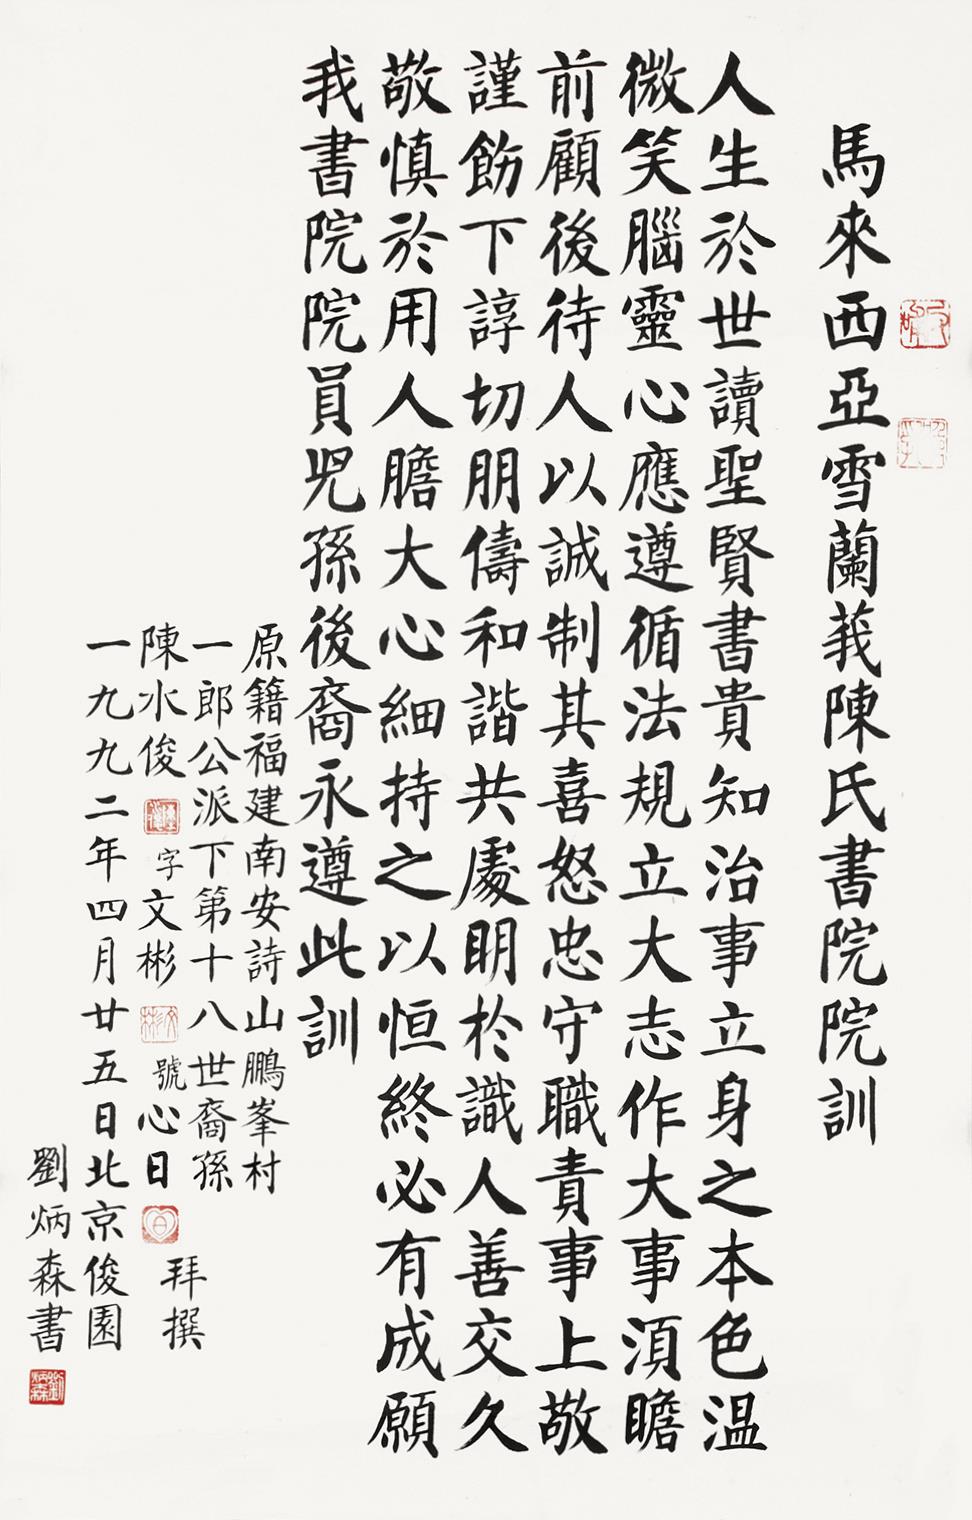 馬來西亞雪蘭莪陳氏書院院訓
人生於世讀聖賢書貴知治事立身之本色温
微笑腦靈心應遵循法規立大志作大事湏瞻
前顧後待人以誠制其喜怒忠守職責事上敬
謹飭下諄切朋儔和諧共處明於識人善交久
敬慎於用人膽大心細持之以恒終必有成願
我書院院員児孫後裔永遵此訓
原籍福建南安詩山鵬峯村
一郎公派下第十八世裔孫
陳水俊字文彬號心日拜撰
一九九二年四月廿五日北京俊園
劉炳森書
劉炳森